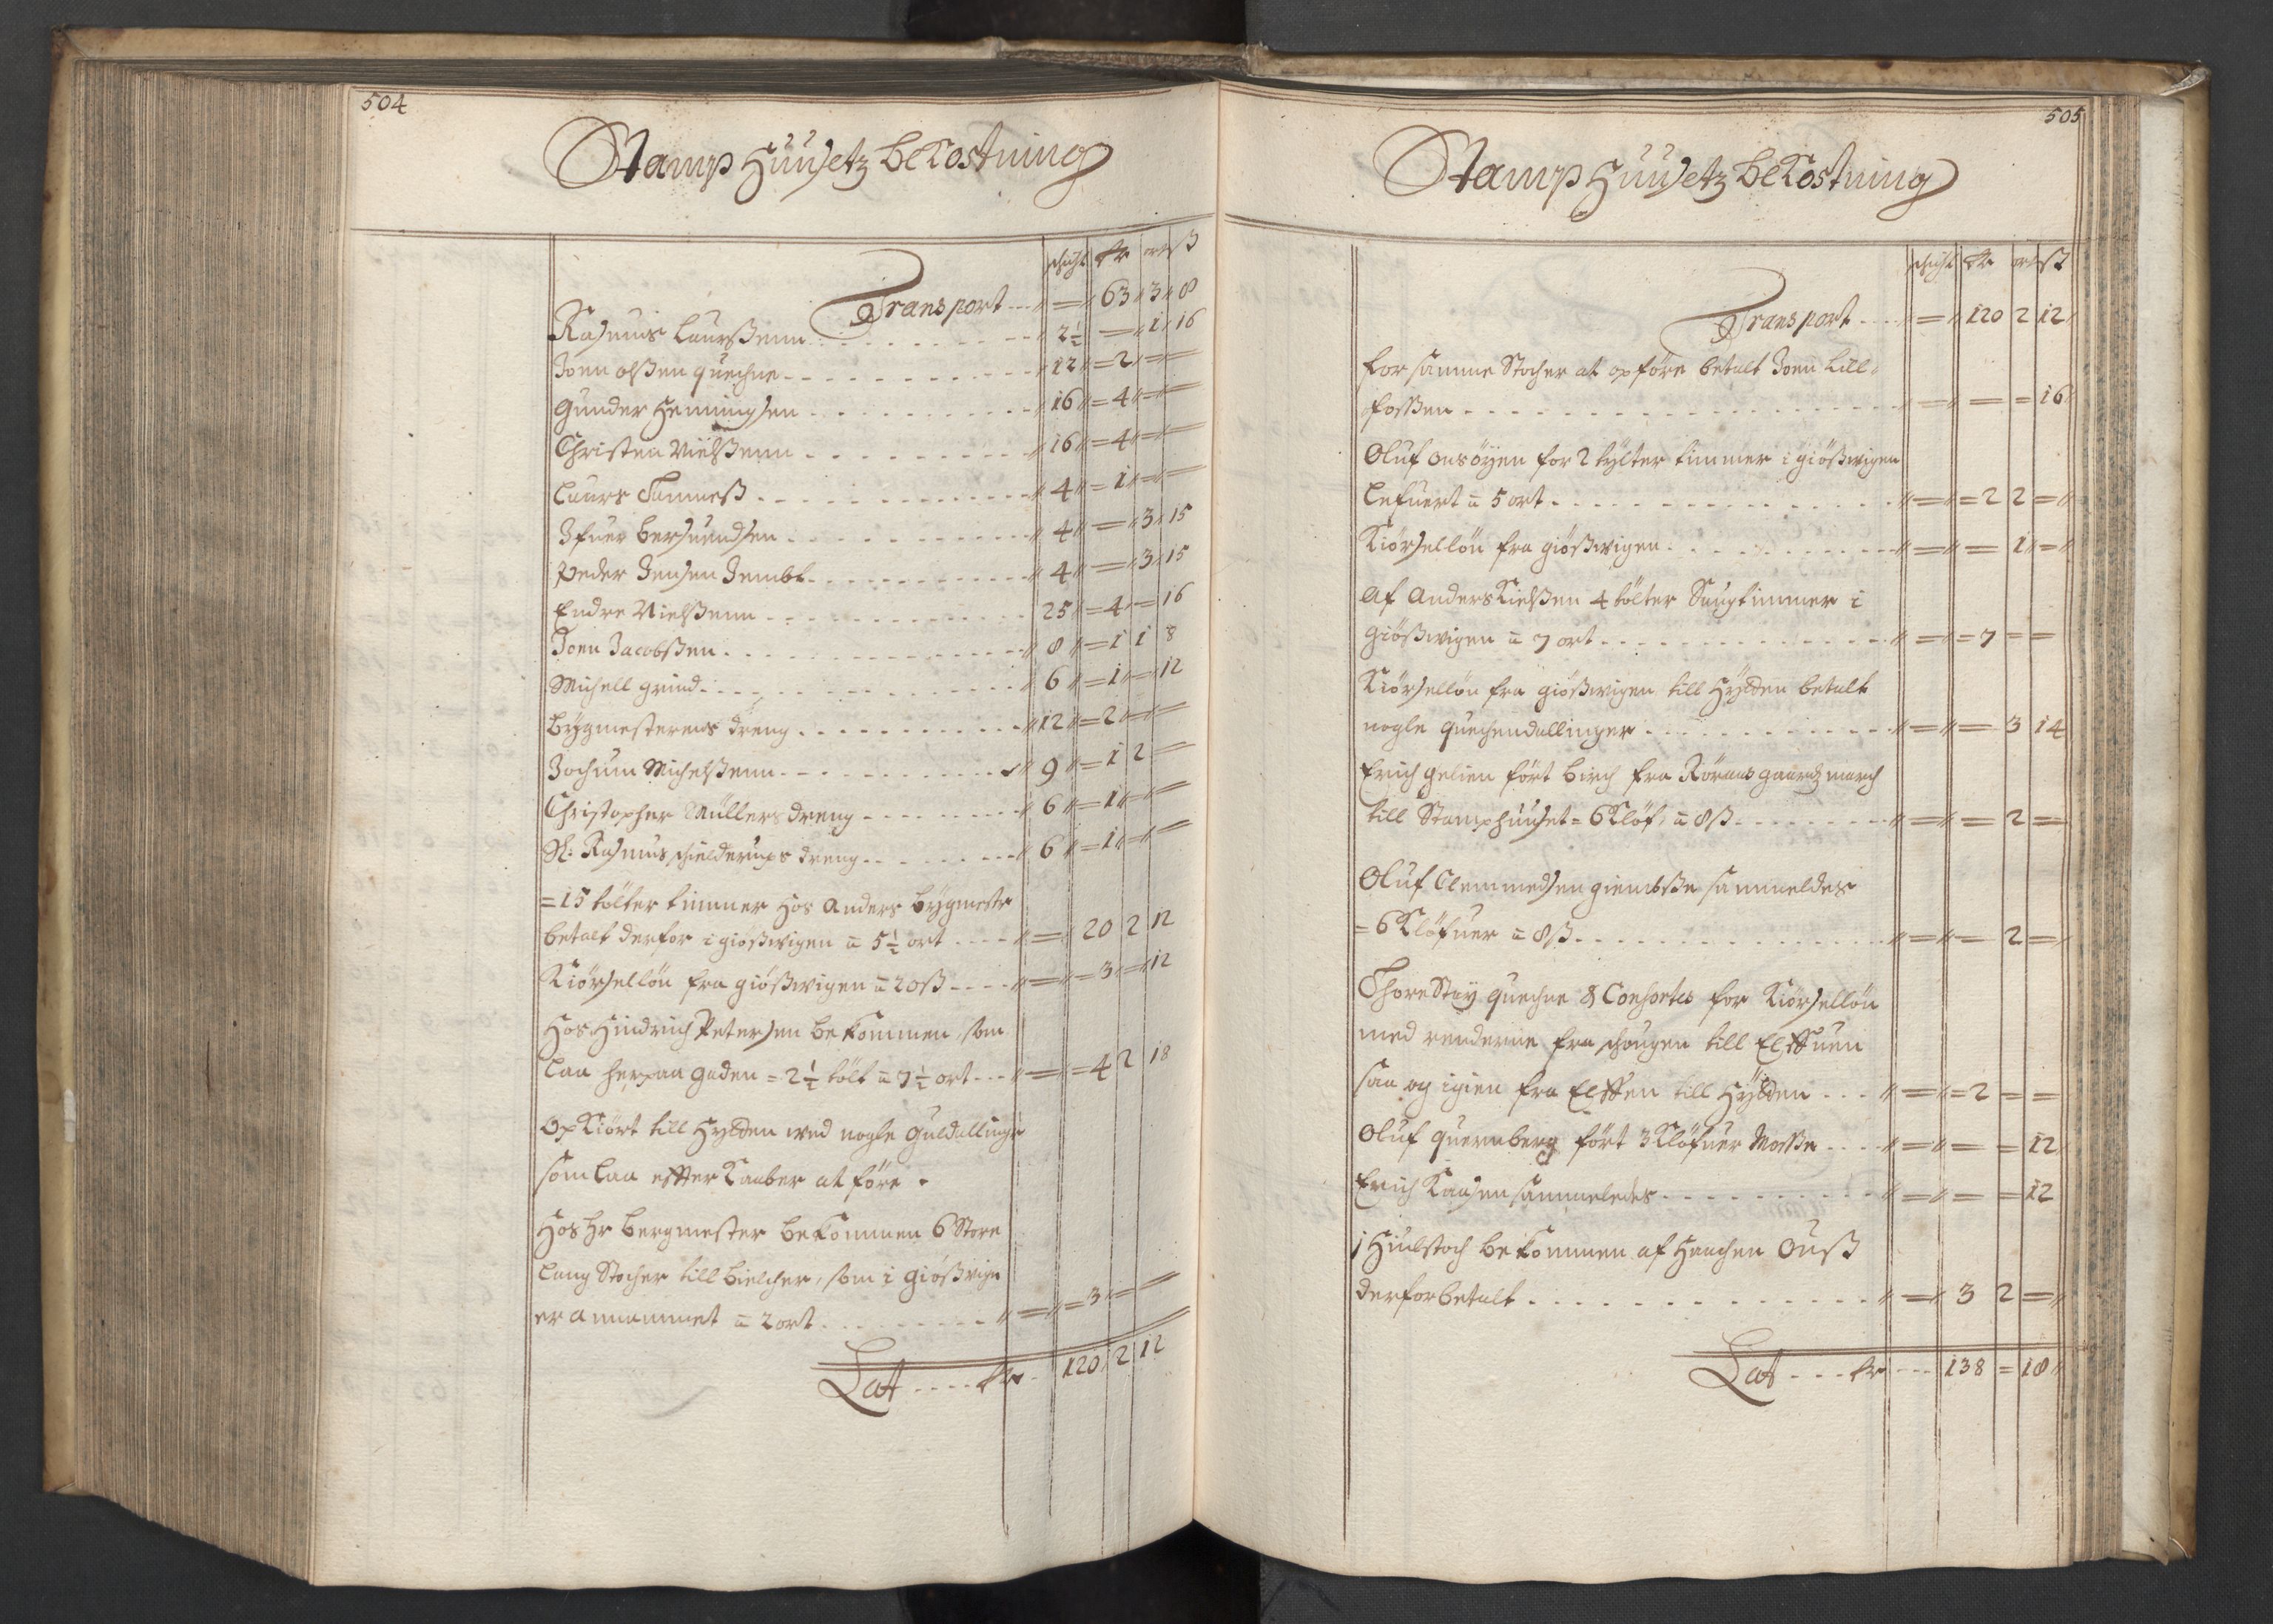 504
Stamp Huusetz beKostning
schicht Rdr ort ß
Transport - - - 〃 = 〃 63 〃 3 〃 8
Rasmus Laurßenn - - - - 〃 2½ 〃 = 〃 1 〃 16
Joen olßen quechne - - - - 〃 12 〃 = 2 〃 = =
Gunder Henningsen - - - - 〃 16 〃 = 4 〃 = =
Christen Nielßenn - - - - 〃 16 〃 = 4 〃 = =
Laurs Tamneß - - - - 〃 4 〃 = 1 〃 = =
Ifuer bersuendsen - - - - 〃 4 〃 = 〃 3 〃 15
Peder Jensen Jembt - - - - 〃 4 〃 = 〃 3 〃 15
Endre Nielßenn - - - - 25 〃 = 4 〃 = 16
Joen Jacobßen - - - - 〃 8 〃 = 1 1 8
Michell grind - - - - 〃 6 〃 = 1 〃 = 12
bÿgmesterens dreng - - - - 〃 12 〃 = 2 〃 = =
Jochum Michelßenn - - - - 〃 9 〃 = 1 2 =
Christopher Müllers dreng - - - - 〃 6 〃 = 1 〃 = =
Sl: Rasmus schielderups dreng - - - - 〃 6 〃 = 1 〃 = =
= 15 tölter timmer Hos Anders bÿgmestr
betalt derfor i giößwigen a 5½ ort - - - 〃 = 20 2 12
Kiörsellön fra giößwigen a 20ß - - - 〃 = 〃 = 3 〃 = 12
Hos Hindrich Petersen beKommen som
laa her paa gaden = 2½ tölt a 7½ ort - - - 〃 = = 4 2 18
opKiört till Hylden med nogle Guldallinger
som laa effter Kaaber at före .
Hos Hr bergmester beKommen 6 Store
lang Stocher till bielcher, som i giößwigen
er annammet a 2 ort - - - - 〃 = 〃 = 3 〃 = =
Lat - - - - Rdr 120 2 12
505
Stamp Huusetz beKostning
schicht Rdr ort ß
Transport - - - 〃 = 〃 120 2 12
for samme Stocher at opföre betalt Joen Lill=
foßen - - - - = = = 16
Oluf onsöyen for 2 tÿlter timmer i giößwigen
Lefuert a 5 ort - - - - 〃 = 〃 = 2 2 =
Kiörsellön fra giößwigen - - - - 〃 = 〃 = 1 〃 =
Af Anders Kielßen 4 tölter Saugtimmer i
Giößwigen a 7 ort - - - - 〃 = 〃 = 7 = =
Kiörsellön fra giößwigen till Hÿlden betalt
nogle quechendallinger - - - - 〃 = 〃 = 3 14
Erich gelien fört birch fra Röraas gaardz march
till Stamphuuset = 6 Klöf, a 8ß - - - - 〃 = 〃 = 2 =
Oluf Clemmedsen giembße sammeledes
= 6 Klöfuer a 8ß - - - - 〃 = 〃 = 2 =
Thore Stöy quechne & Consortes for Kiörsellön
med renderne fra schougen till Elffuen
saa og igien fra Elffen till Hÿlden - - - 〃 = 〃 = 2 = =
Oluf quernberg fört 3 Klöfuer Moßße - - - 〃 = 〃 = = 12
Erich Kaasen sammeledes - - - - 〃 = 〃 = = 12
1 Hiulstoch beKommen af Haachen Ouß
derfor betalt - - - - 〃 = 〃 3 2 =
Lat - - - Rdr - - - 138 = 18